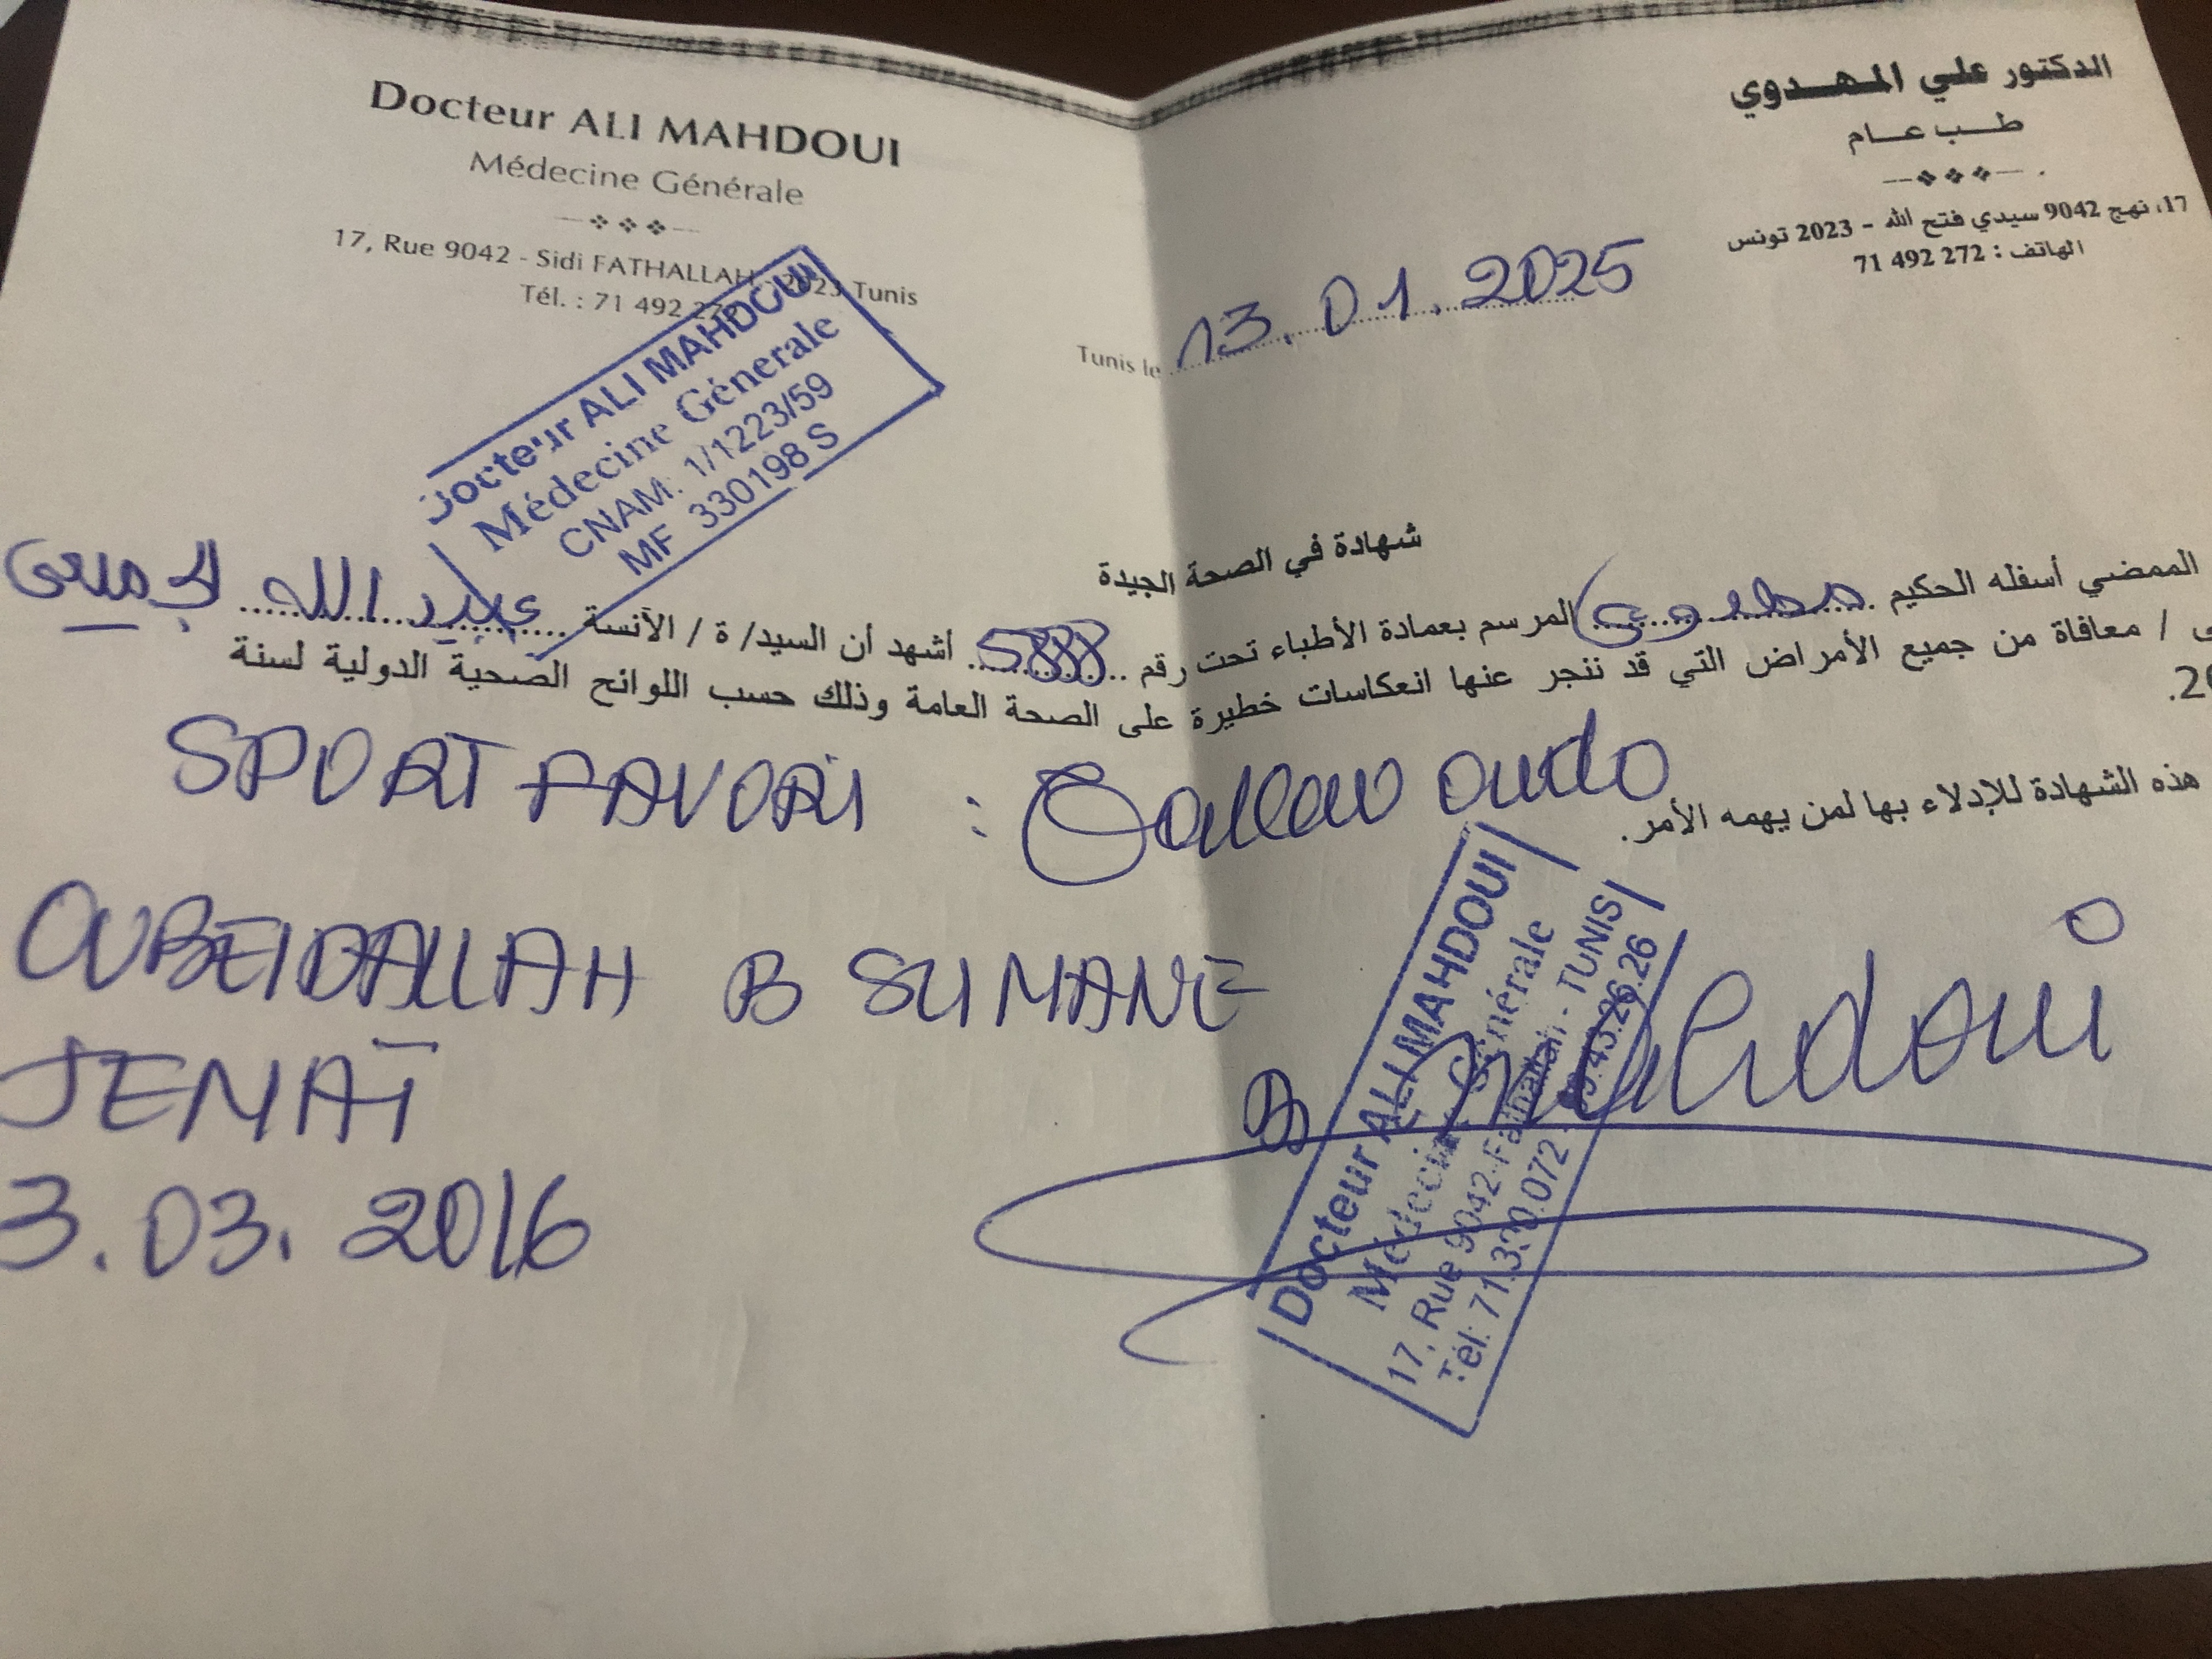 Docteur ALI MAHDOUI
Médecine Générale
17, Rue 9042 - Sidi FATHALLAH - 2023 Tunis
Tél. : 71 492 27
الدكتور علي المهدوي
طب عام
17، نهج 9042 سيدي فتح الله - 2023 تونس
الهاتف : 272 492 71
Tunis le 13.01.2025
Docteur ALI MAHDOUI
Médecine Génerale
CNAM: 1/1223/59
MF 330198 S
شهادة في الصحة الجيدة
الممضي أسفله الحكيم مهدوي المرسم بعمادة الأطباء تحت رقم 5888 أشهد أن السيد/ ة / الآنسة عبيد الله الجمعي
/ معافاة من جميع الأمراض التي قد ننجر عنها انعكاسات خطيرة على الصحة العامة وذلك حسب اللوائح الصحية الدولية لسنة
هذه الشهادة للإدلاء بها لمن يهمه الأمر.
SPORT FAVORI :
OUBEIDALLAH B SLIMANE
JEMAÏ
3.03.2016
Dr Mahdoui
Docteur ALI MAHDOUI
Médecine Générale
17, Rue 9042-Fathallah - TUNIS
Tél: 71.390.072